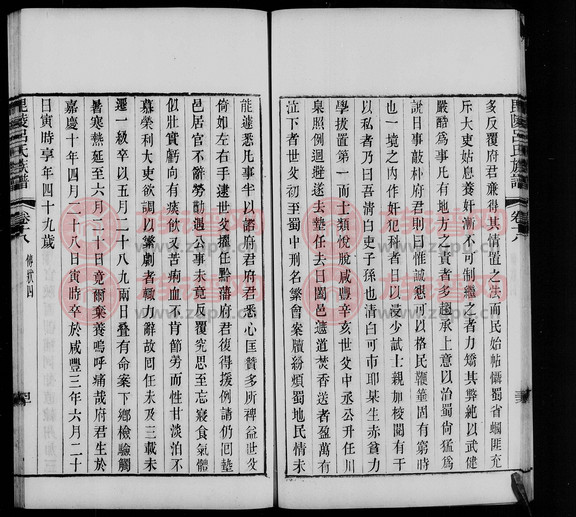 多反覆府君廉得其情置之法而民始帖懾蜀省蟈匪充
斥大吏姑息養奸漸不可制繼之者力矯其弊純以武健
嚴酷爲事凡有地方之責者多遂承上意以治蜀尚猛爲
訣日事敲朴府君則曰惟誠懇可以格民鞭箠固有窮時
也一境之内作奸犯科者日以浸少試士親加校閱有干
以私者乃曰吾清白吏子孫也清白可市耶某生赤貧力
學拔置第一而士類悅服咸豐辛亥世父中丞公升任川
臬照例迴避送墊任去日闔邑遮道焚香送者盈萬有
泣下者世父初至蜀中刑名繁會案牘紛煩蜀地民情未
能遽悉凡事半以諮府君府君悉心匡贊多所裨益世父
倚如左右手逮世父擢任黔藩府君復得援例請仍囘墊
邑居官不辭勞勩遇公事未竟反覆究思至忘寢食氣體
似壯實虧向有痰飲又苦痢血不肯節勞而性甘淡泊不
慕榮利大吏欲調以繁劇者輒力辭故囘任未及三載未
遷一級辛以五月二十八九兩日疊有命案下鄉檢驗觸
暑寒熱延至六月二十日竟爾棄養嗚呼痛哉府君生於
嘉慶十年四月二十八日寅時卒於咸豐三年六月二十
日寅時享年四十九歲
毘陵呂氏族譜
卷十八
傳狀四
毘陵呂氏族譜
卷十八